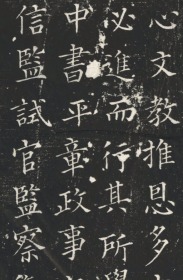 心文教推恩多
必進而行其所學
中書平章政事
信監試官監察